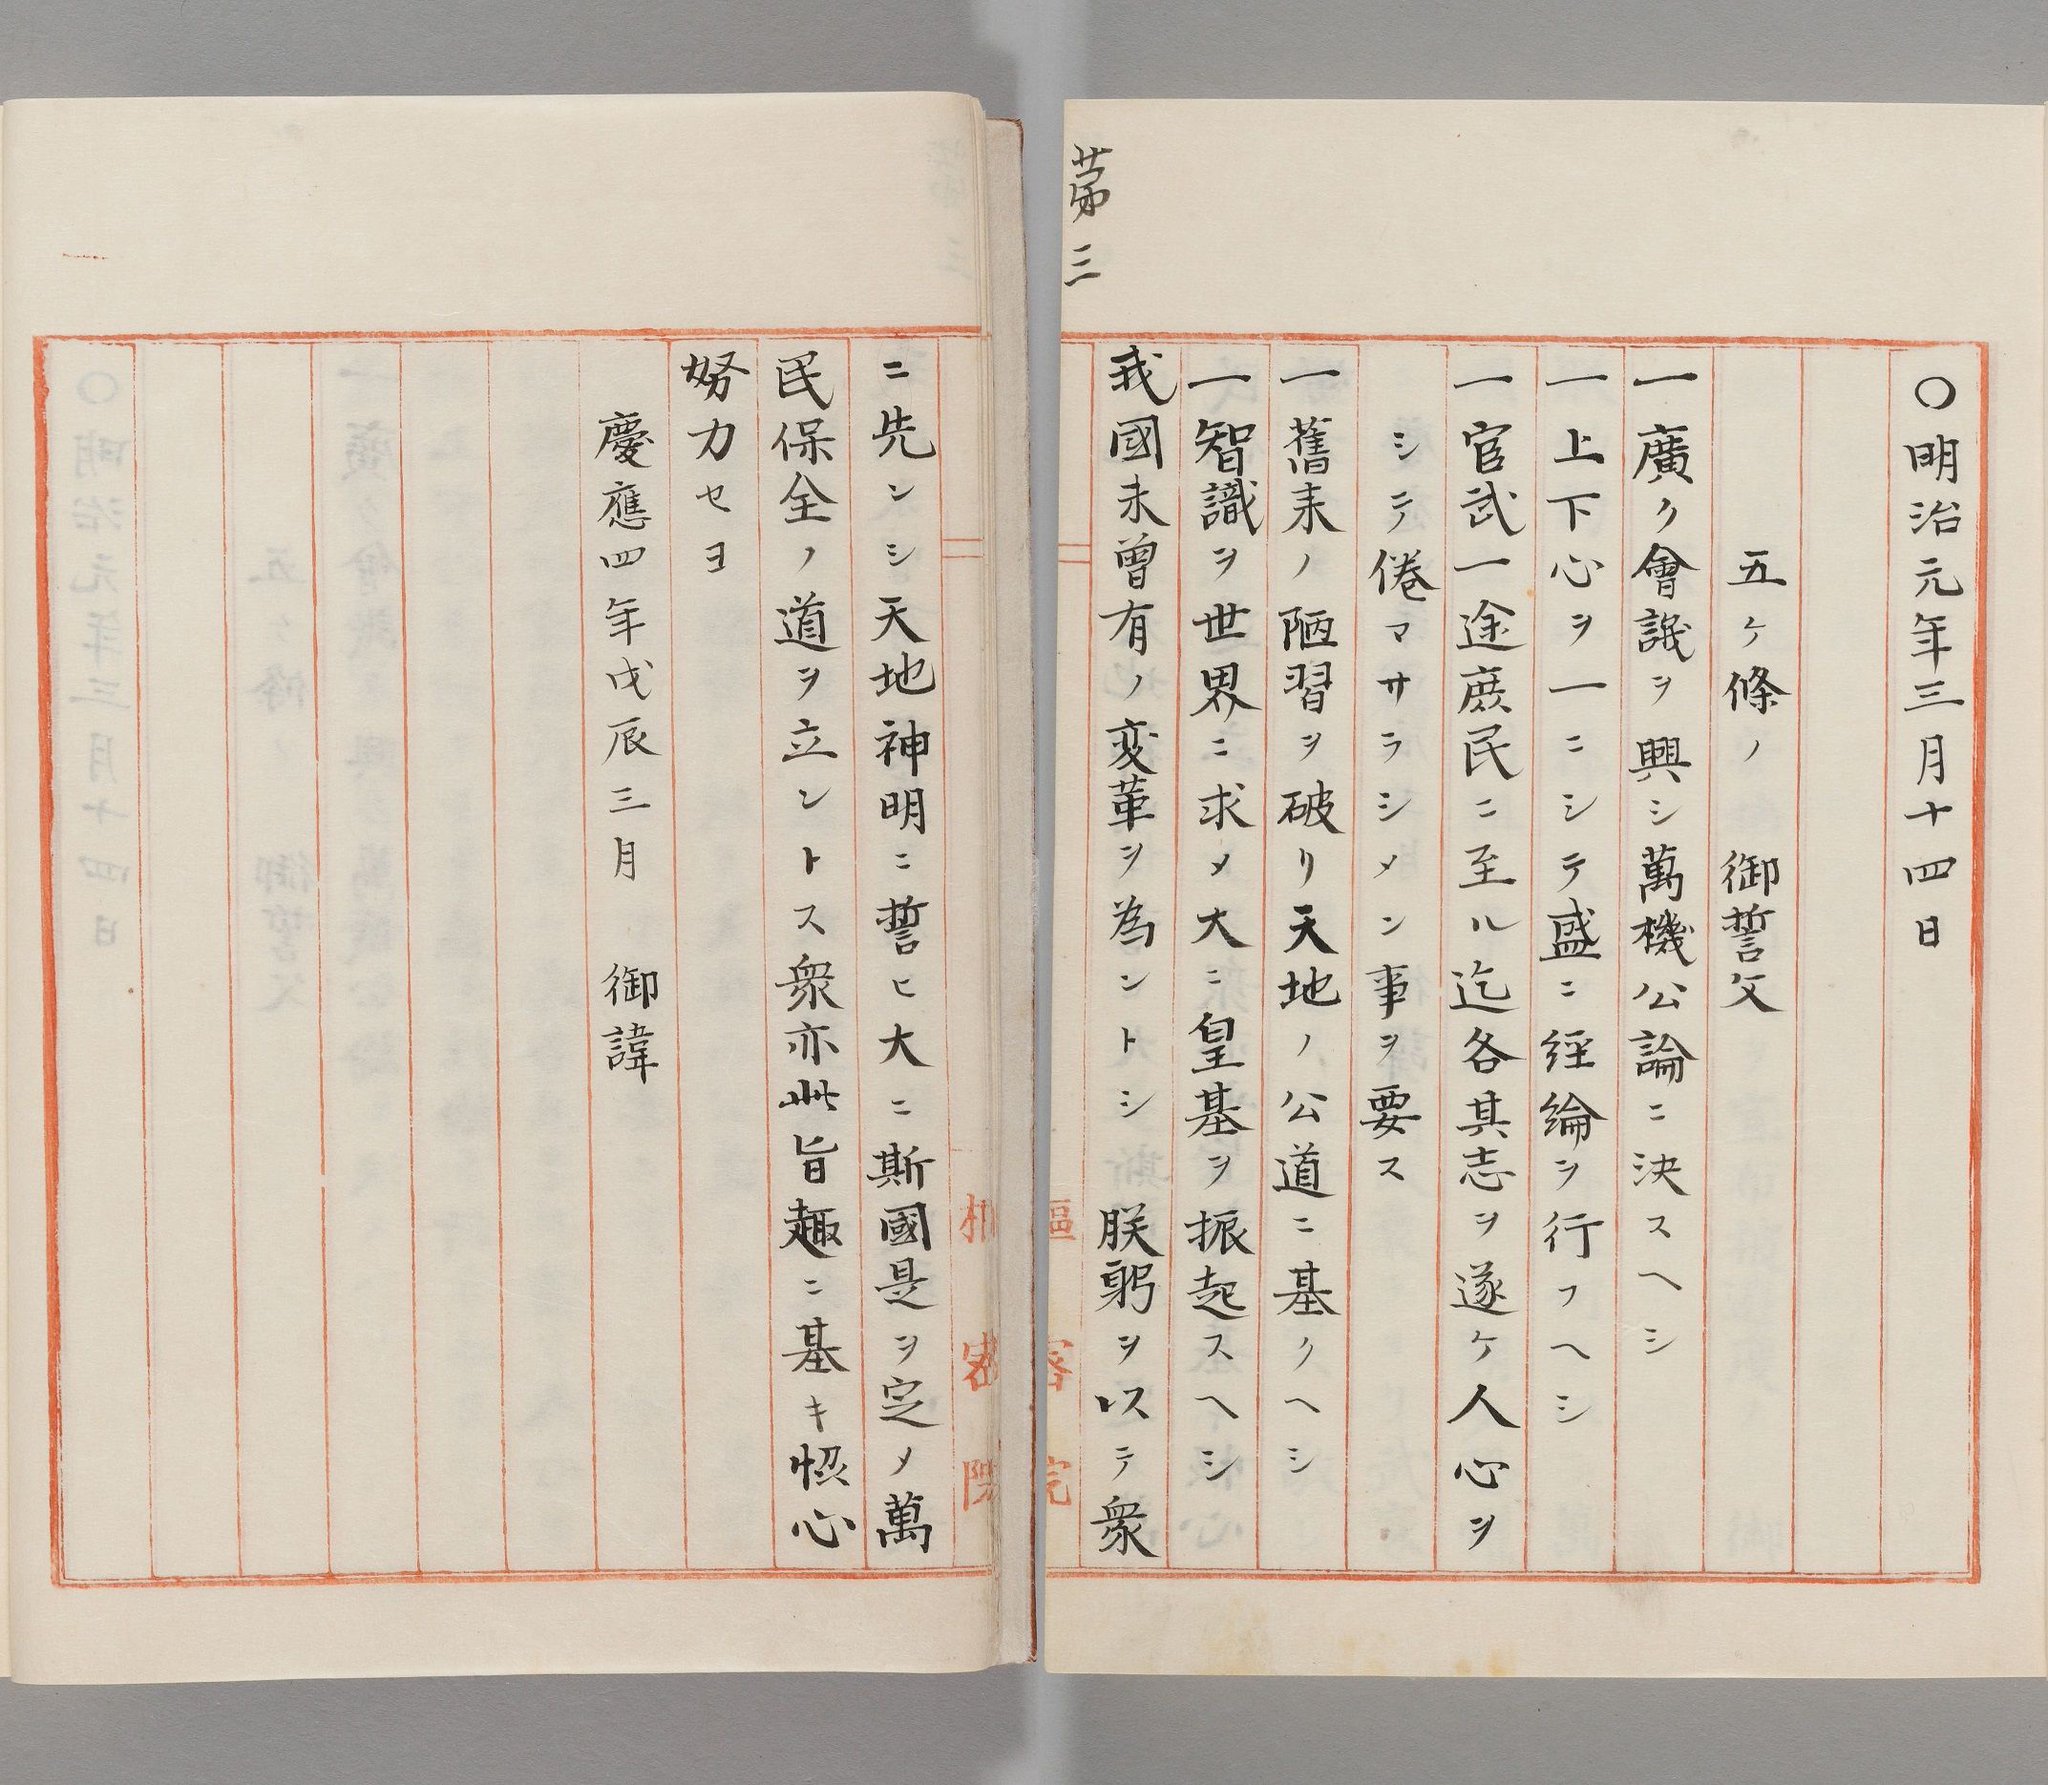 第三
〇明治元年三月十四日
五ヶ條ノ　御誓文
一廣ク會議ヲ興シ萬機公論ニ決スヘシ
一上下心ヲ一ニシテ盛ニ経綸ヲ行フヘシ
一官武一途庶民ニ至ル迄各其志ヲ遂ケ人心ヲ
シテ倦マサラシメン事ヲ要ス
一舊来ノ陋習ヲ破リ天地ノ公道ニ基クヘシ
一智識ヲ世界ニ求メ大ニ皇基ヲ振起スヘシ
我國未曾有ノ変革ヲ為ントシ　朕躬ヲ以テ衆
樞密院
ニ先ンシ天地神明ニ誓ヒ大ニ斯國是ヲ定メ萬
民保全ノ道ヲ立ントス衆亦此旨趣ニ基キ恊心
努力セヨ
慶應四年戊辰三月　御諱